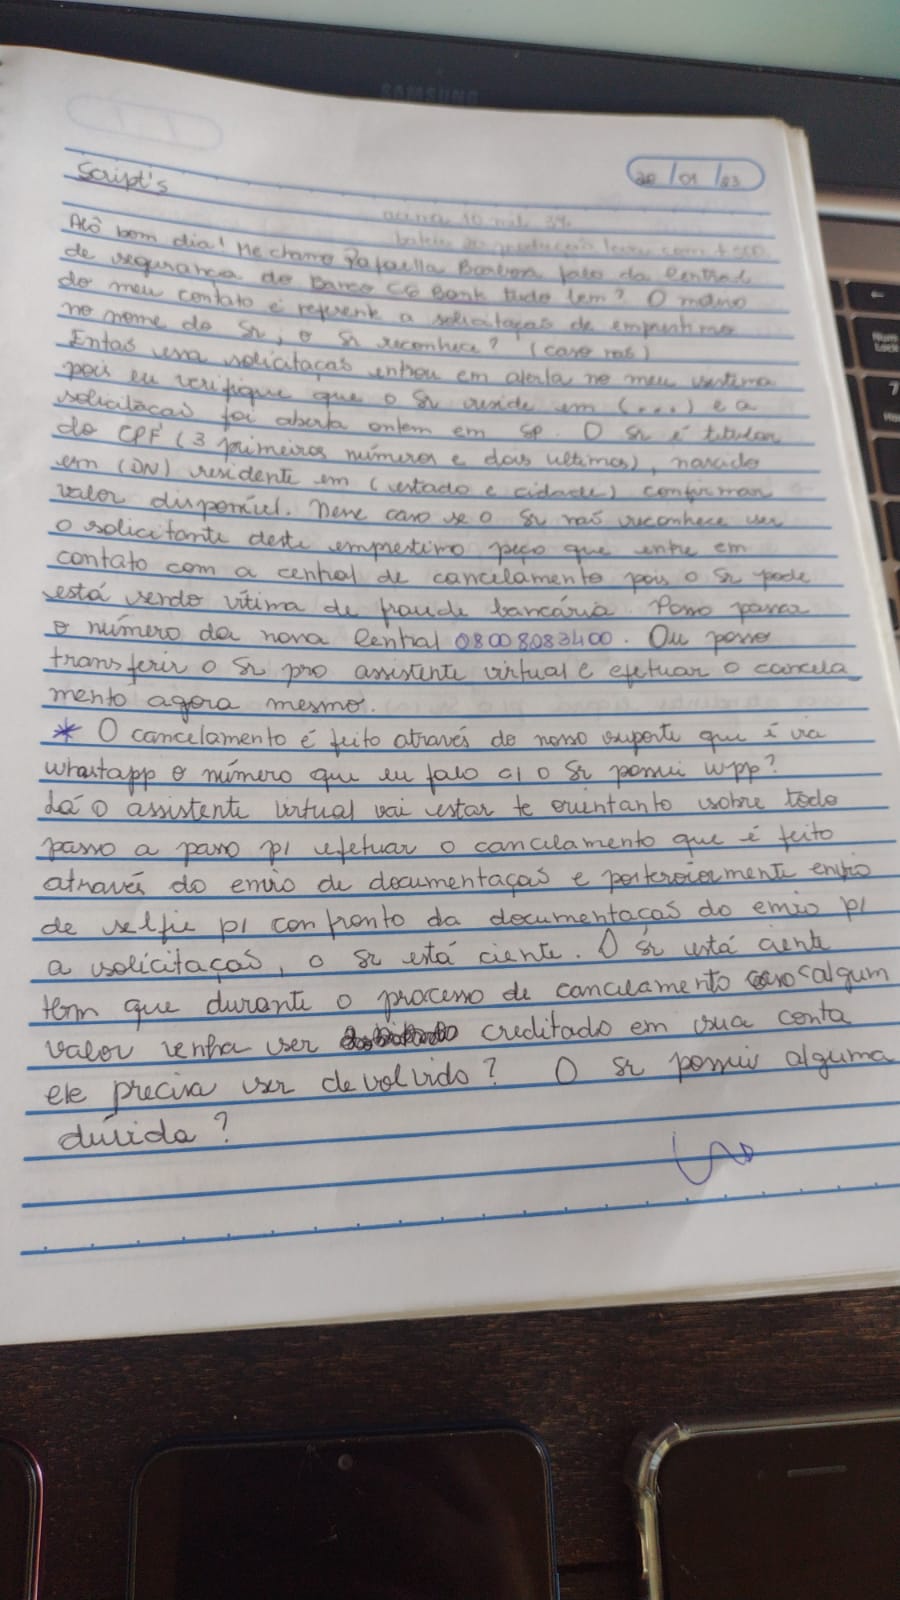 SAMSUNG
Script's 20/01/23
acima 10 mil 3%
Alô bom dia! Me chamo Rafaella falo da Central
de segurança do Banco C6 Bank tudo bem? O motivo
do meu contato é referente a solicitação de emprestimo
no nome do Sr, o Sr reconhece? (caso não)
Então essa solicitação entrou em alerta no meu sistema
pois eu verifiquei que o Sr reside em (...) e a
solicitação foi aberta ontem em SP. O Sr é titular
do CPF (3 primeiros números e dois ultimos), nascido
em (DN) residente em (estado e cidade) confirmar
valor disponível. Nesse caso se o Sr não reconhece ser
o solicitante deste emprestimo peço que entre em
contato com a central de cancelamento pois o Sr pode
está sendo vítima de fraude bancária. Posso passar
o número da nossa Central 08008083400. Ou posso
transferir o Sr pro assistente virtual e efetuar o cancela
mento agora mesmo.
* O cancelamento é feito através do nosso suporte que é via
whastapp o número que eu falo c/ o Sr possui wpp?
Lá o assistente virtual vai estar te orientanto sobre todo
passo a passo p/ efetuar o cancelamento que é feito
através do envio de documentação e envio
de selfie p/ confronto da documentação do envio p/
a solicitação, o Sr está ciente. O Sr está ciente
tbm que durante o processo de cancelamento caso algum
valor venha ser creditado em sua conta
ele precisa ser devolvido? O Sr possui alguma
dúvida?